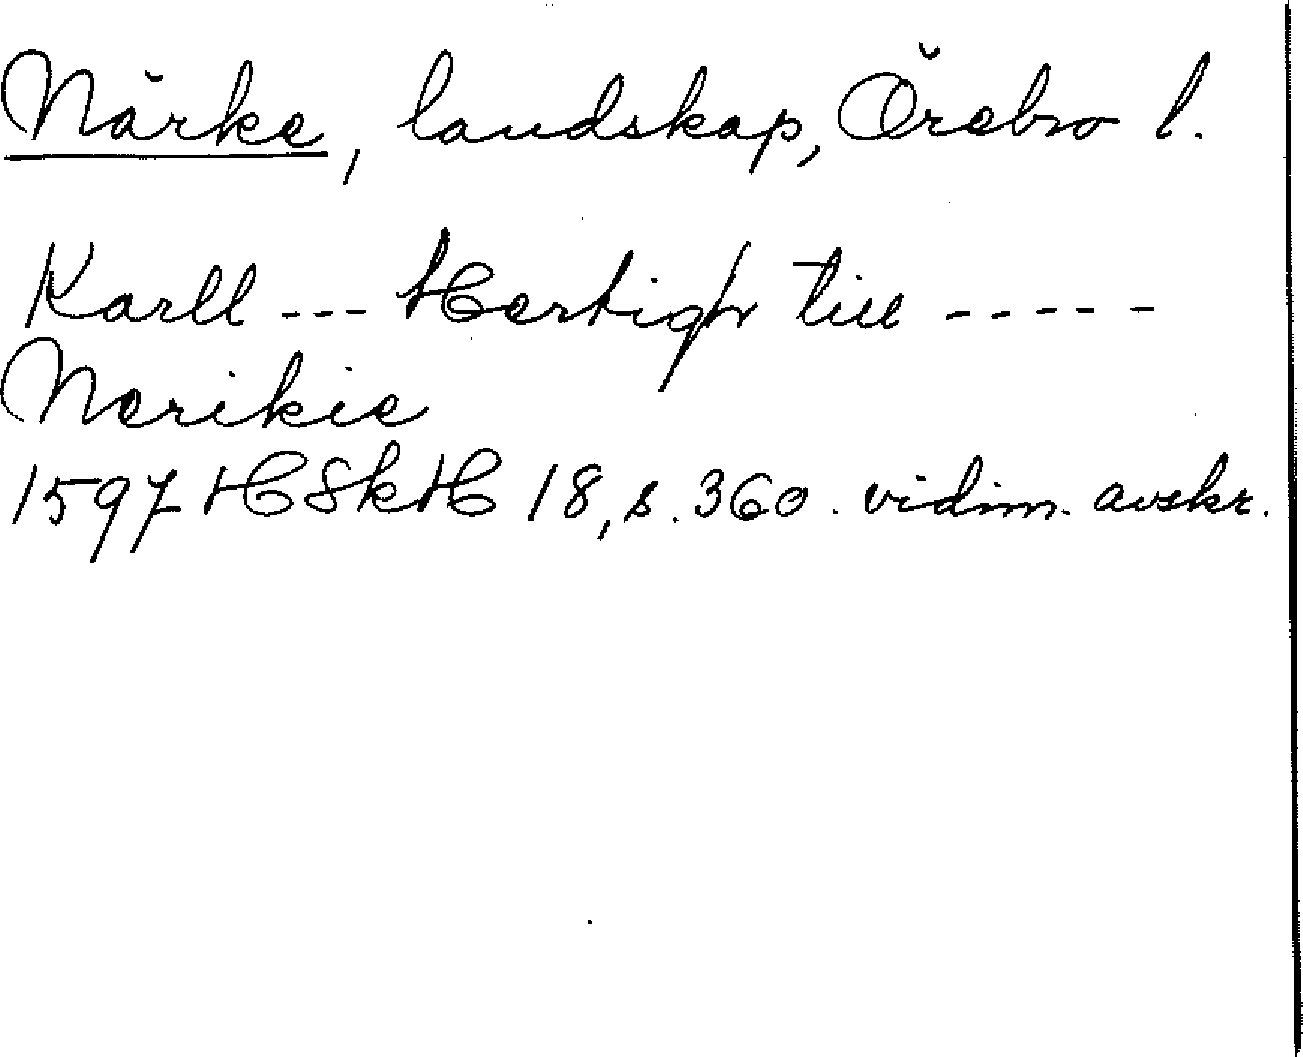 Närke, landskap, Örebro l.
Karll --- Hertigh till -----
Nerikie
1597 HSkH 18, s. 360. vidim. avskr.